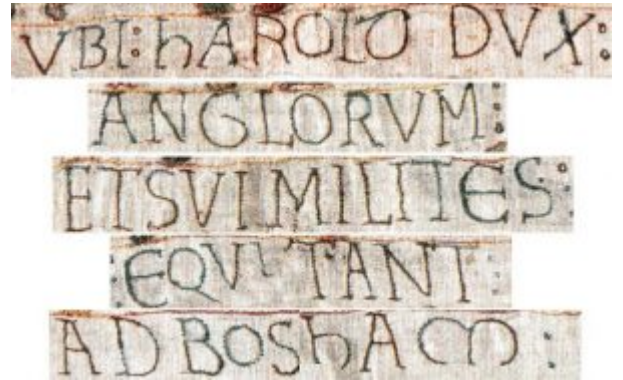 VBI: hAROLD DVX:
ANGLORVM:
ETSVI MILITES:
:EQVITANT:
AD BOShAM: